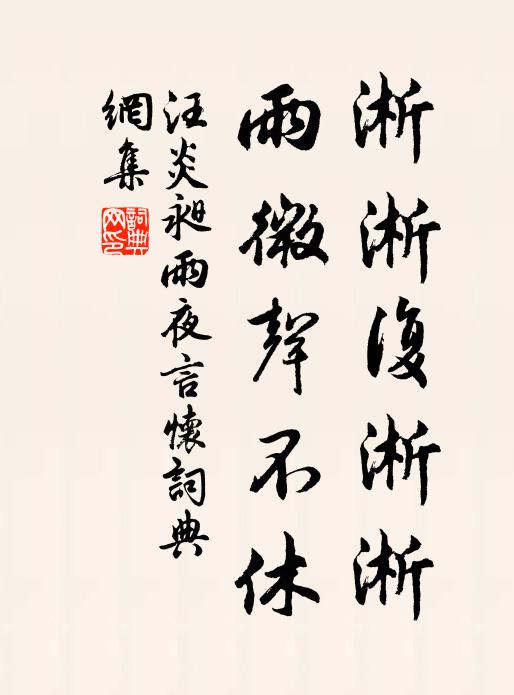 淅淅復淅淅
雨微聲不休
汪炎昶雨夜言懷詞典
網集
詞典網印